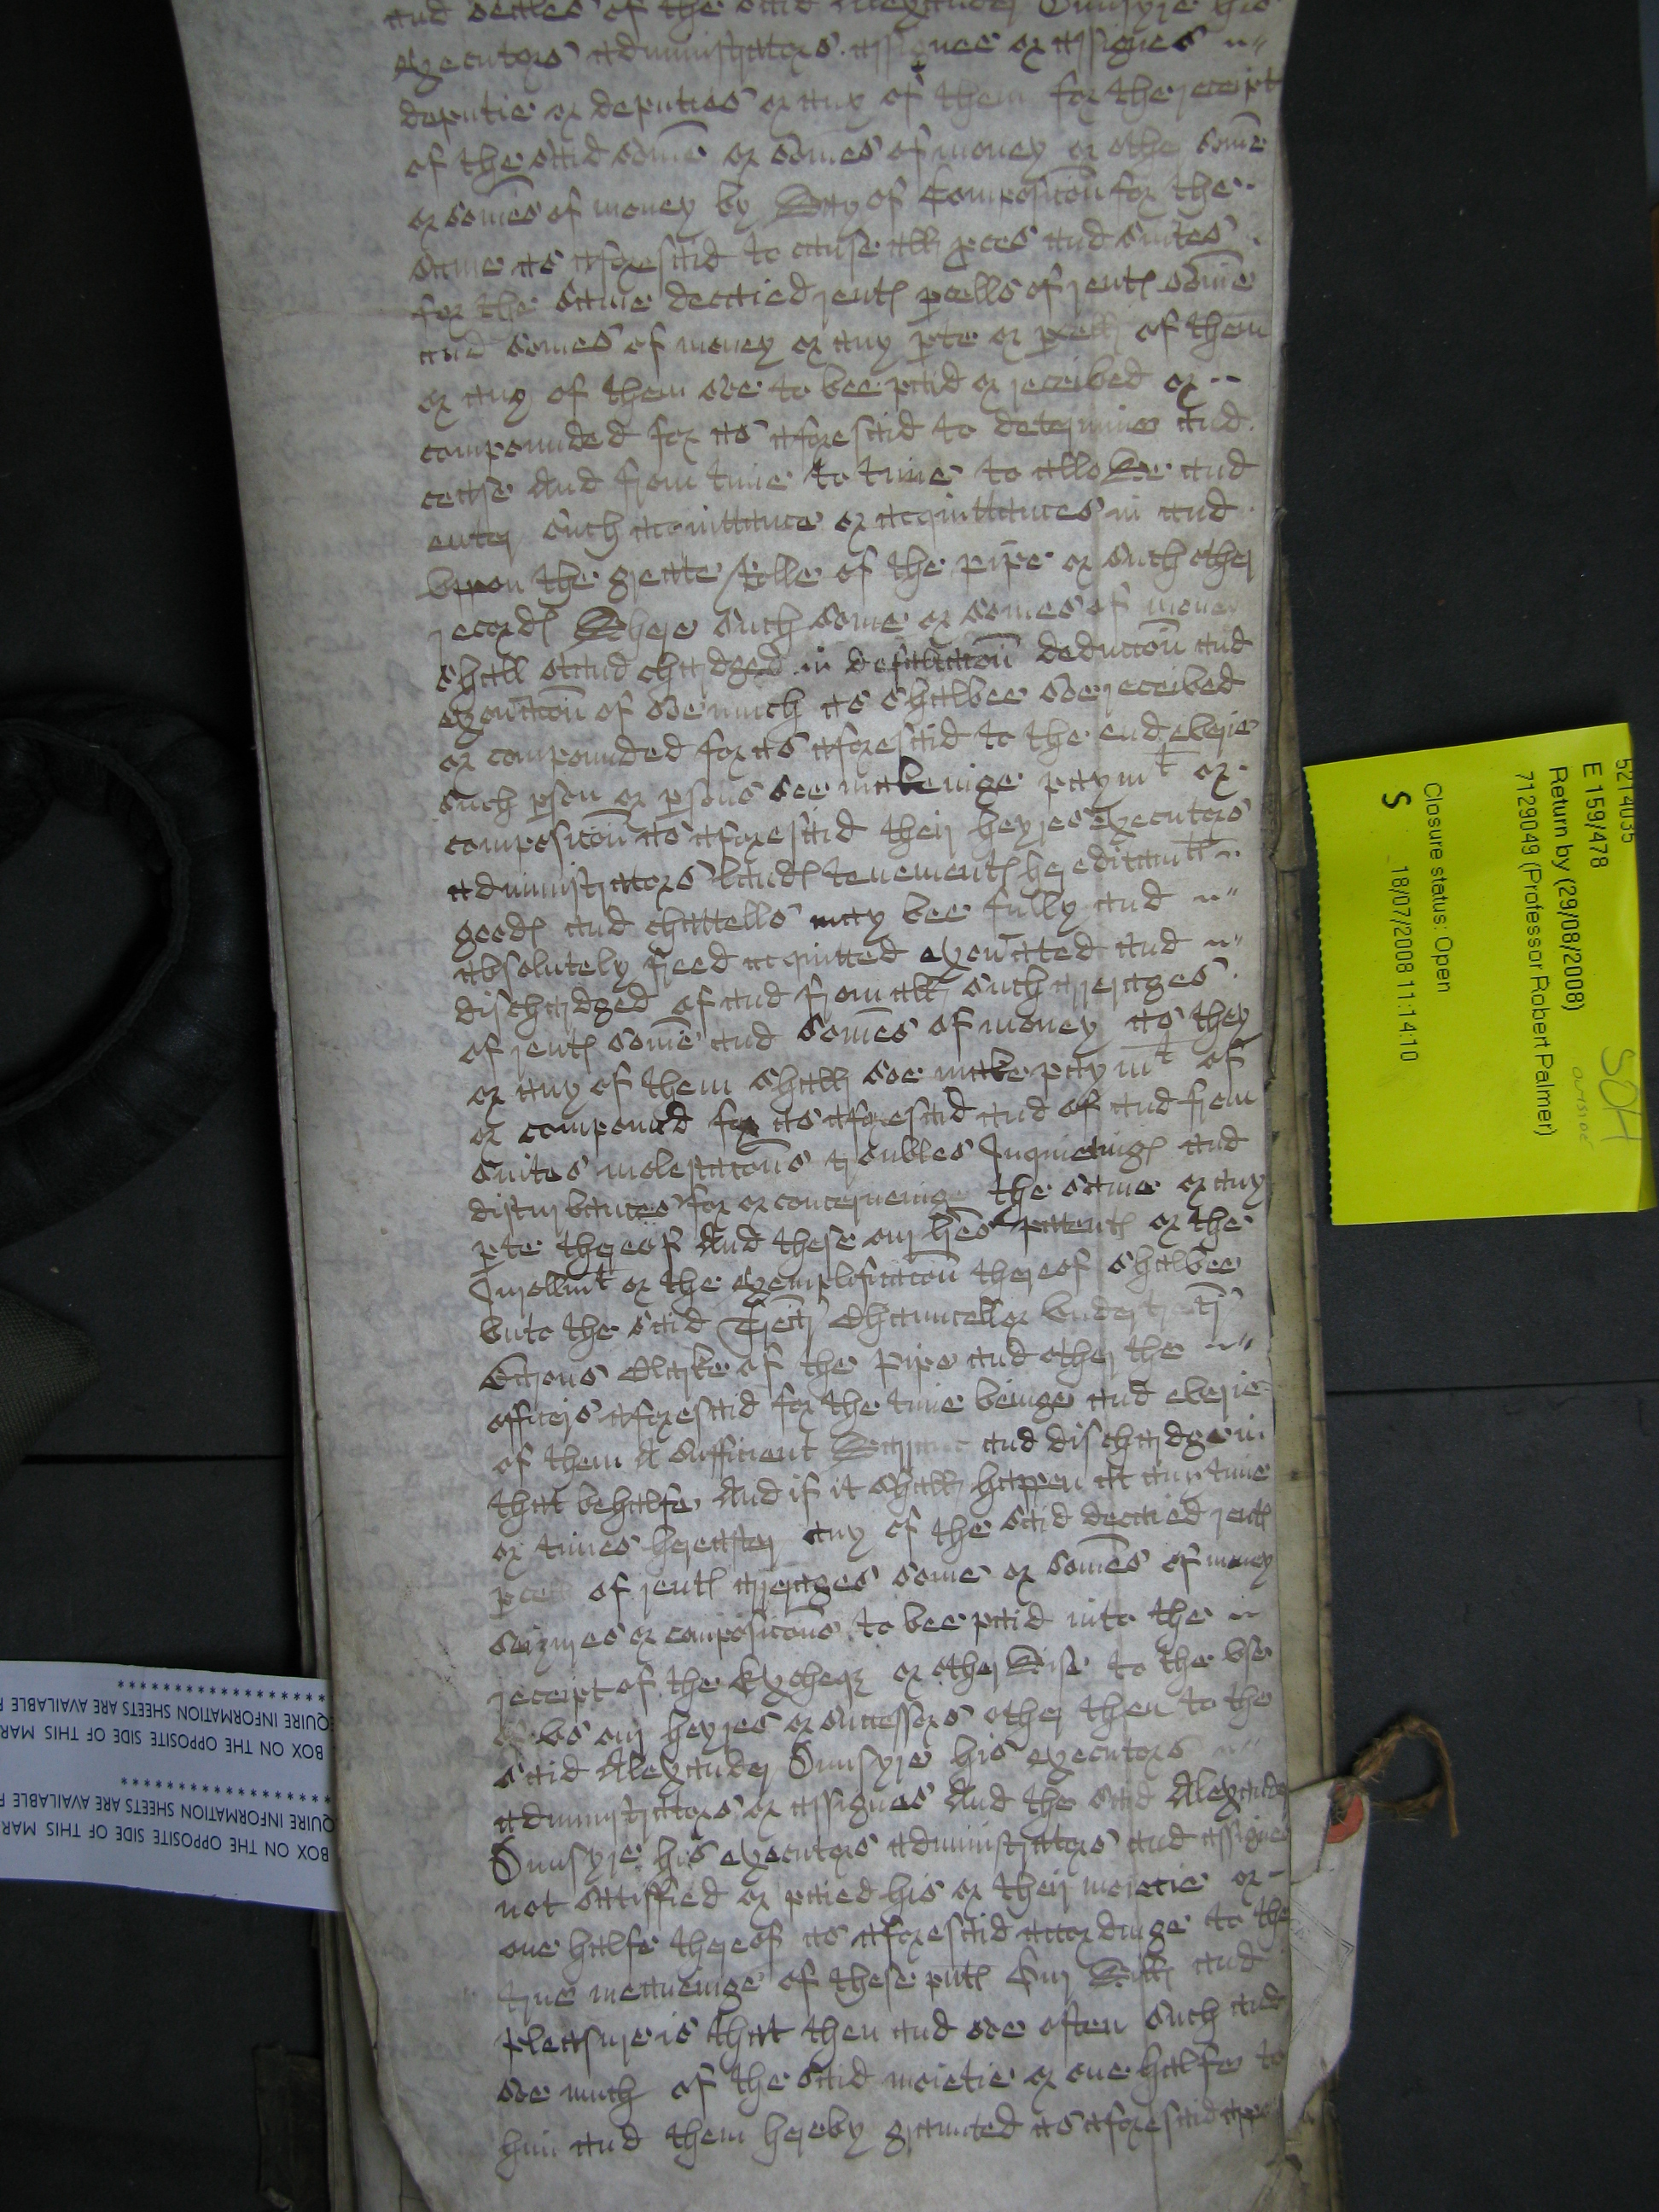 and seales of the said Alexander Dunsyre his
executors administrators assignee or assignes
deputie or deputies or any of them for the receipt
of the said some or somes of money or other some
or somes of money by Way of Composicon for the
same as aforesaid to cause all pces and suites
for the same decaied rents pcells of rents some
and somes of money or any pte or pcell of them
or any of them soe to bee paid or received or
compounded for as aforesaid to determine and
cease And from time to time to allowe and
enter such acquittance or acquittances in and
vppon the greate Rolle of the pipe or such other
records Where such some or somes of money
shall stand chardged in defalcacon deduccon and
exonacon of soe much as shalbee soe received
or compounded for as aforesaid to the end everie
such pson or psons soe makeinge paymt or
composicon as aforesaid their heyres executors
administrators lands tenements hereditamts
goods and chattells may bee fully and
absolutely freed acquitted exonated and
dischardged of and from all such arrerages
of rents some and somes of money as they
or any of them shall soe make paymt of
or compound for as aforesaid and of and from
suites molestacons troubles Inquietings and
disturbances for or concerneinge the same or any
pte thereof And these our lres patents or the
Inrollmt or the exemplificacon thereof shalbee
vnto the said Trer Chauncellor vndertrer
Barons Clarke of the Pipe and other the
officers aforesaid for the time beinge and everie
of them A sufficient Warrant and dischardge in
that behalfe And if it shall happen at any time
or times hereafter any of the said decaied rents
pcell of rents arrerages some or somes of money
seizures or composicons to bee paid into the
receipt of the Excheqr or otherWise to the vse
of vs our heyres or successors other then to the
said Alexander Dunsyre his executors
administrators or assignes And the said Alexander
Dunsyre his executors administrators and assignes
not sattisfied or paied his or their moietie or
one halfe thereof as aforesaid accordinge to the
true meaneinge of these pnts Our Will and
pleasure is that then and soe often such and
soe much of the said moietie or one halfe to
him and them hereby graunted as aforesaid
5214035
E 159/478
Return by (29/08/2008)
7129049 (Professor Robert Palmer)
Closure status: Open
S 18/07/2008 11:14:10
SOH
BOX ON THE OPPOSITE SIDE OF THIS MAR
QUIRE INFORMATION SHEETS ARE AVAILABLE F
********************
BOX ON THE OPPOSITE SIDE OF THIS MAR
QUIRE INFORMATION SHEETS ARE AVAILABLE F
********************